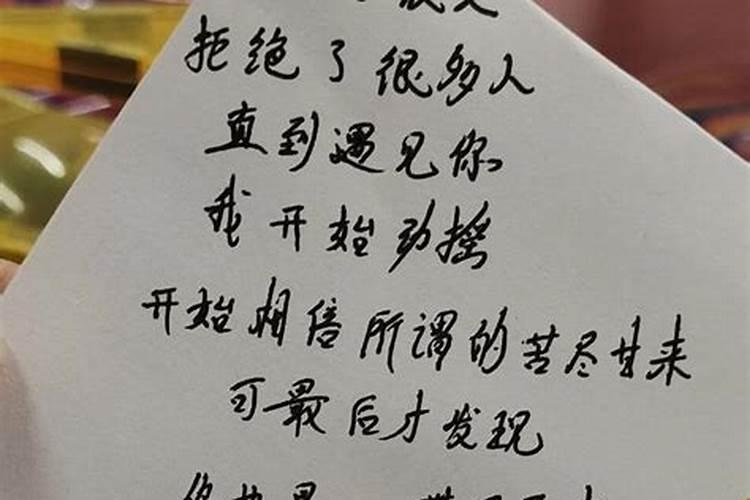 拒绝了很多人
直到遇见你
我开始动摇
开始相信所谓的苦尽甘来
可最后才发现